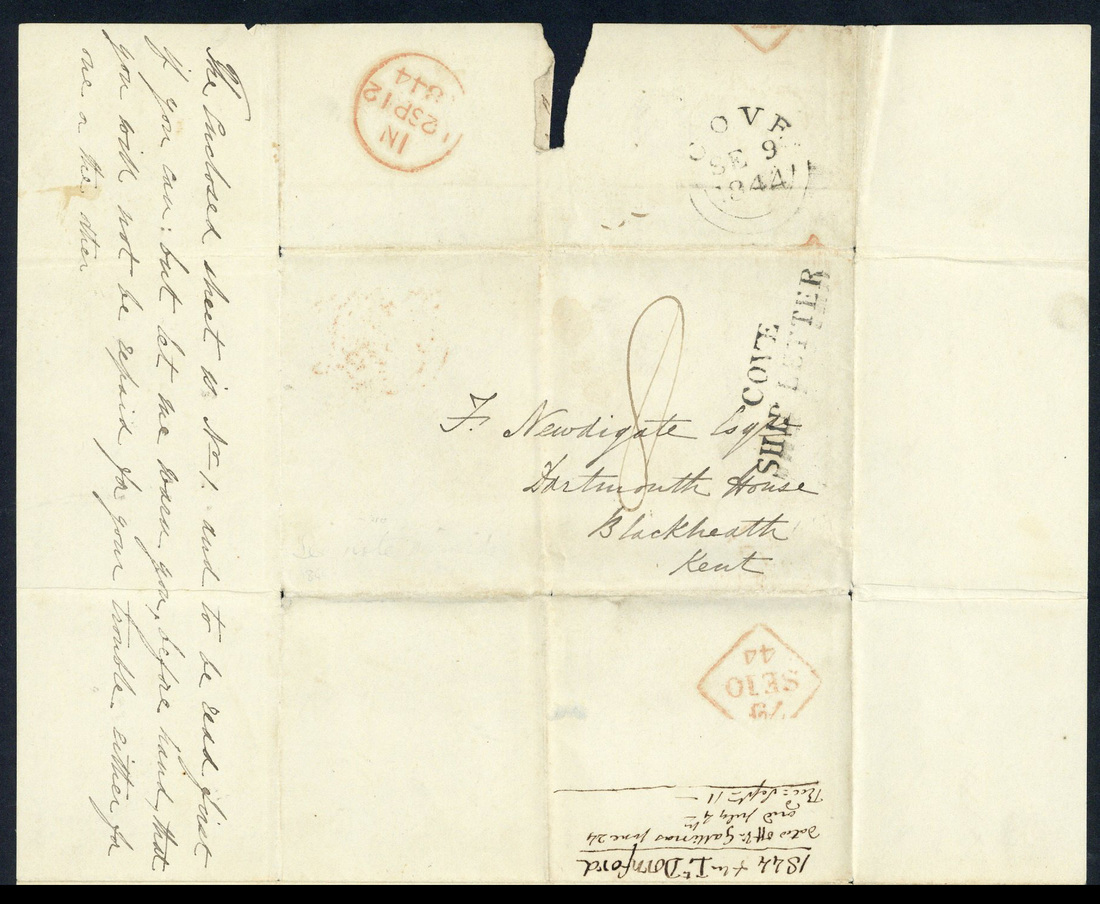 The Enclosed sheet is No 1. and to be read first
if you can: but let me warn you, before hand, that
you will not be repaid for your trouble either for
one or the other
IN
12SP12
1844
COVE
SE 9
1844
COVE
SHIP LETTER
8
F. Newdigate Esqr
Dartmouth House
Blackheath
Kent
SE10
44
1844 Lt Dornford
Gallinas June 24
end July 4th
Rec: Septr 11